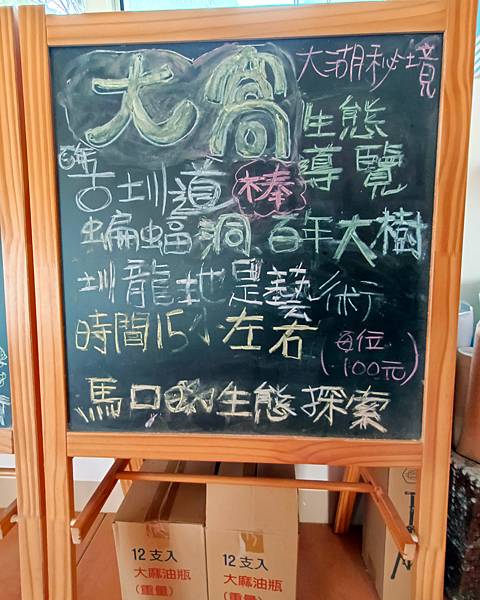 大窩
大湖秘境
生態
導覽
百年
古圳道 棒
蝙蝠洞 百年大樹
圳龍地景藝術
時間1.5小左右
每位
(100元)
馬口 生態探索
12支入
大麻油瓶
(重量)
12支入
大麻油瓶
(重量)